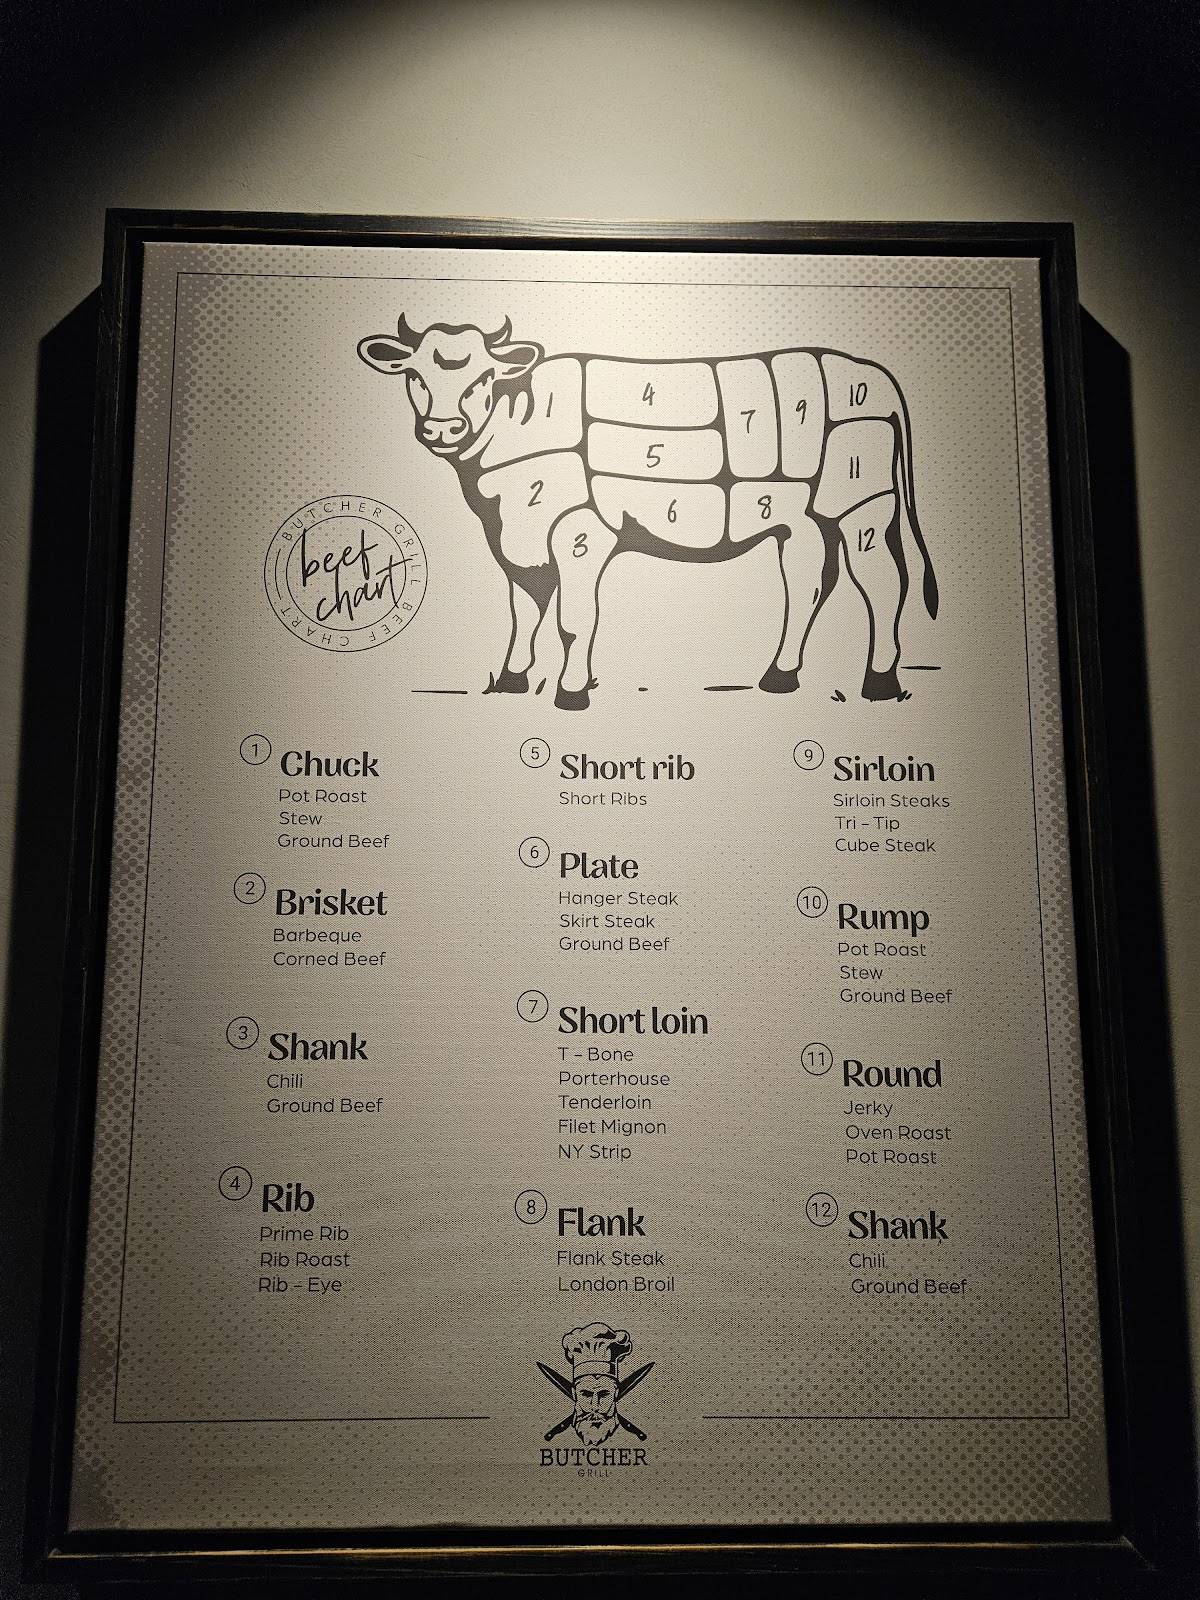 1
4
7
9
10
5
11
2
6
8
3
12
BUTCHER GRILL BEEF CHART
beef
chart
1 Chuck
Pot Roast
Stew
Ground Beef
2 Brisket
Barbeque
Corned Beef
3 Shank
Chili
Ground Beef
4 Rib
Prime Rib
Rib Roast
Rib - Eye
5 Short rib
Short Ribs
6 Plate
Hanger Steak
Skirt Steak
Ground Beef
7 Short loin
T - Bone
Porterhouse
Tenderloin
Filet Mignon
NY Strip
8 Flank
Flank Steak
London Broil
9 Sirloin
Sirloin Steaks
Tri - Tip
Cube Steak
10 Rump
Pot Roast
Stew
Ground Beef
11 Round
Jerky
Oven Roast
Pot Roast
12 Shank
Chili
Ground Beef
BUTCHER
GRILL